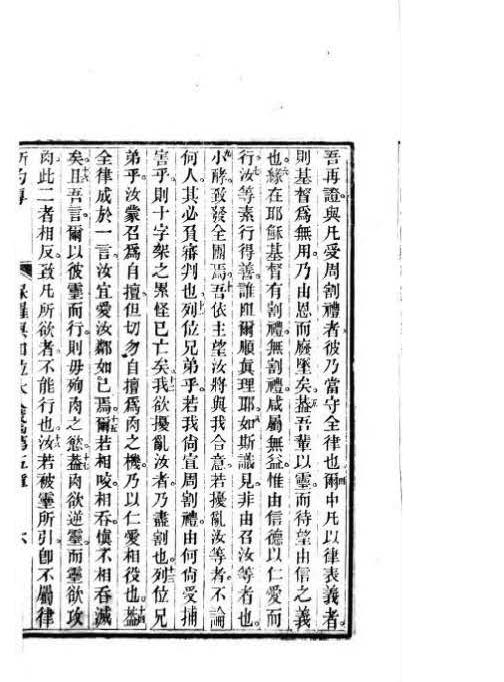 吾再證。與凡受周割禮者。彼乃當守全律也。四爾中凡以律表義者。
則基督爲無用。乃由恩而廢墜矣。五葢吾輩以靈而待望由信之義
也。六緣在耶穌基督有割禮無割禮。咸屬無益。惟由信德以仁愛而
行。七汝等素行得善。誰阻爾順眞理耶。八如斯議見。非由召汝等者也。
九小酵致發全團焉。十吾依主望汝將與我合意。若擾亂汝等者。不論
何人。其必負審判也。十一列位兄弟乎。若我尚宣周割禮。由何尚受捕
害乎。則十字架之累怪已亡矣。十二我欲擾亂汝者乃盡割也。十三列位兄
弟乎。汝蒙召爲自擅。但切勿自擅爲肉之機。乃以仁愛相役也。十四葢
全律成於一言。汝宜愛汝鄰如己焉。十五爾若相咬相吞。愼不相吞滅
矣。十六且吾言。爾以彼靈而行。則毋殉肉之慾。十七葢肉欲逆靈。而靈欲攻
肉。此二者相反。致凡所欲者不能行也。十八汝若被靈所引。卽不屬律